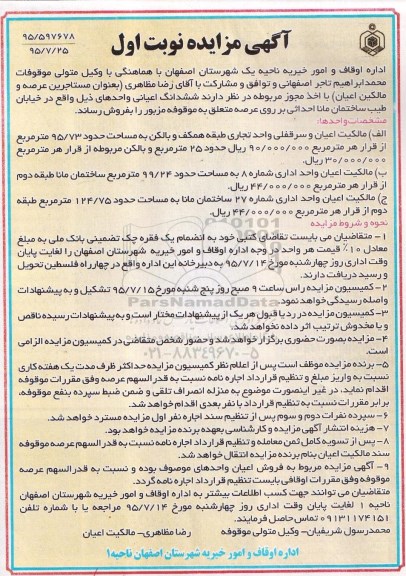 ۹۵/۵۹۷۶۷۸
۹۵/۷/۲۵
آگهی مزایده نوبت اول
اداره اوقاف و امور خیریه ناحیه یک شهرستان اصفهان با هماهنگی با وکیل متولی موقوفات
محمدابراهیم تاجر اصفهانی و توافق و مشارکت با آقای رضا مظاهری (بعنوان مستاجرین عرصه و
مالکین اعیان) با اخذ مجوز مربوطه در نظر دارند ششدانگ اعیانی واحدهای ذیل واقع در خیابان
طیب ساختمان مانا احداثی بر روی عرصه متعلق به موقوفه مزبور را بفروش رساند.
مشخصات واحدها:
الف) مالکیت اعیان و سرقفلی واحد تجاری طبقه همکف و بالکن به مساحت حدود ۹۵/۷۳ مترمربع
از قرار هر مترمربع ۹۰/۰۰۰/۰۰۰ ریال حدود ۲۵ مترمربع و بالکن مربوطه از قرار هر مترمربع
۳۰/۰۰۰/۰۰۰ ریال.
ب) مالکیت اعیان واحد اداری شماره ۸ به مساحت حدود ۹۹/۲۴ مترمربع ساختمان مانا طبقه دوم
از قرار هر مترمربع ۴۴/۰۰۰/۰۰۰ ریال.
ج) مالکیت اعیان واحد اداری شماره ۲۷ ساختمان مانا به مساحت حدود ۱۲۴/۷۵ مترمربع طبقه
دوم از قرار هر مترمربع ۴۴/۰۰۰/۰۰۰ ریال.
نحوه و شروط مزایده
۱- متقاضیان می بایست تقاضای کتبی خود به انضمام یک فقره چک تضمینی بانک ملی به مبلغ
معادل ۱۰٪ قیمت هر واحد در وجه اداره اوقاف و امور خیریه شهرستان اصفهان را لغایت پایان
وقت اداری روز چهارشنبه مورخ ۹۵/۷/۱۴ به دبیرخانه این اداره واقع در چهارراه فلسطین تحویل
و رسید دریافت دارند.
۲- کمیسیون مزایده راس ساعت ۹ صبح روز پنج شنبه مورخ ۹۵/۷/۱۵ تشکیل و به پیشنهادات
واصله رسیدگی خواهد نمود.
۳- کمیسیون مزایده در رد یا قبول هر یک از پیشنهادات مختار است و به پیشنهادات رسیده ناقص
و یا مخدوش ترتیب اثر داده نخواهد شد.
۴- مزایده بصورت حضوری برگزار خواهد شد و حضور شخص متقاضی در کمیسیون مزایده الزامی
است.
۵- برنده مزایده موظف است پس از اعلام نظر کمیسیون مزایده حداکثر ظرف مدت یک هفته کاری
نسبت به واریز مبلغ و تنظیم قرارداد اجاره نامه نسبت به قدرالسهم عرصه وفق مقررات موقوفه
اقدام نماید. در غیر اینصورت موضوع به منزله انصراف تلقی و ضمن ضبط سپرده بنفع موقوفه،
برابر مقررات نسبت به تنظیم قرارداد با نفر بعدی اقدام خواهد شد.
۶- سپرده نفرات دوم و سوم پس از تنظیم سند اجاره نفر اول مزایده مسترد خواهد شد.
۷- هزینه انتشار آگهی مزایده و کارشناسی بعهده برنده مزایده خواهد بود.
۸- پس از تسویه کامل ثمن معامله و تنظیم قرارداد اجاره نامه نسبت به قدرالسهم عرصه موقوفه
سند مالکیت اعیان بنام برنده مزایده انتقال خواهد شد.
۹- آگهی مزایده مربوط به فروش اعیان واحدهای موصوف بوده و نسبت به قدرالسهم عرصه
موقوفه وفق مقررات اوقافی بایست تنظیم قرارداد اجاره نامه گردد.
متقاضیان می توانند جهت کسب اطلاعات بیشتر به اداره اوقاف و امور خیریه شهرستان اصفهان
ناحیه ۱ لغایت پایان وقت اداری روز چهارشنبه مورخ ۹۵/۷/۱۴ مراجعه یا با شماره تلفن
۰۹۱۳۱۱۷۴۱۵۱ تماس حاصل فرمایند.
محمدرسول شریفیان- وکیل متولی موقوفه رضا مظاهری- مالکیت اعیان
اداره اوقاف و امور خیریه شهرستان اصفهان ناحیه ۱
ParsNamadData
۰۲۱-۸۸۳۴۹۶۷۰-۵